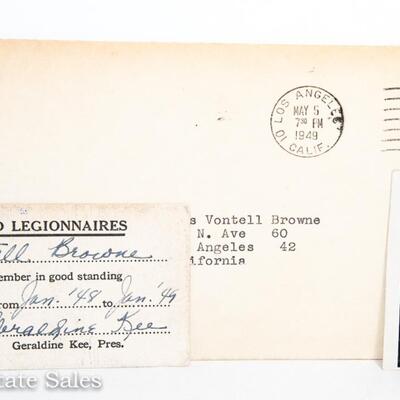 LOS ANGELES
MAY 5
7:30 PM
1949
CALIF.
s Vontell Browne
N. Ave 60
Angeles 42
ifornia
LEGIONNAIRES
ell Browne
ember in good standing
from Jan. '48 to Jan. '49
eraldine Kee
Geraldine Kee, Pres.
tate Sales